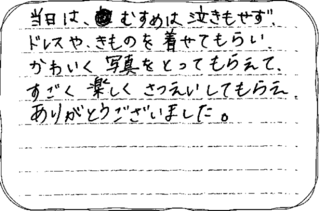 当日は、むすめは泣きもせず、
ドレスや、きものを着せてもらい、
かわいく写真をとってもらえて、
すごく楽しくさつえいしてもらえ
ありがとうございました。